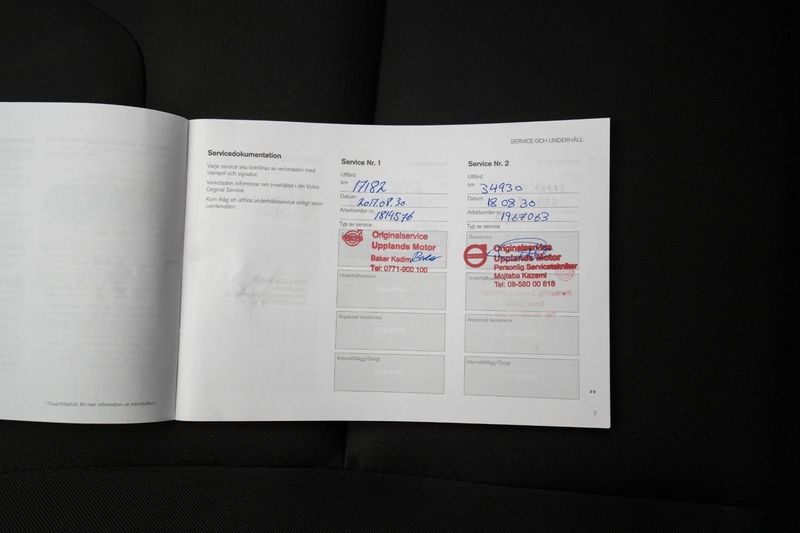 SERVICE OCH UNDERHÅLL
Servicedokumentation
Varje service ska bokföras av verkstaden med
stämpel och signatur.
Verkstaden informerar om innehållet i din Volvo
Original Service.
Kom ihåg att utföra underhållsservice enligt serv-
Service Nr. 1
Utförd
km 17182
Datum 2017.08.30
Arbetsorder nr. 1814576
Typ av service
Originalservice
Upplands Motor
Baker Kadim
Tel: 0771-900 100
Underhållsservice
Anpassad basservice
Intervalltillägg/Övrigt
Service Nr. 2
Utförd
km 34930
Datum 18 08 30
Arbetsorder nr. 1967063
Typ av service
Basservice
Originalservice
Upplands Motor
Personlig Servicetekniker
Mojtaba Kazemi
Tel: 08-580 00 818
Underhållsservice
Anpassad basservice
Intervalltillägg/Övrigt
* Tillval/tillbehör, för mer information se Introduktion.
7